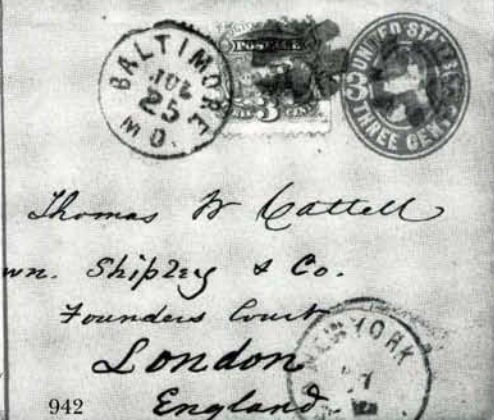 BALTIMORE
JUL
25
MD.
POSTAGE
3
UNITED STATES
3
THREE CENTS
Thomas W Cattell
wn. Shipley & Co.
Founders Court
London
England
NEW YORK
942